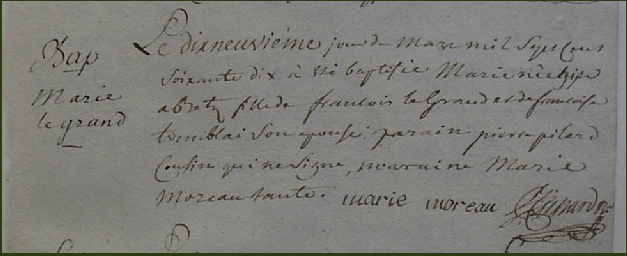 Bap
Marie
le grand
Le dixneuviéme jour de Mars mil Sept Cens
Soixante dix à été baptisée Marie née hyer
fille de francois le Grand et de francoise
Son epouse. parain pierre pilard
Cousin qui ne Signe, maraine Marie
Moreau tante. marie moreau